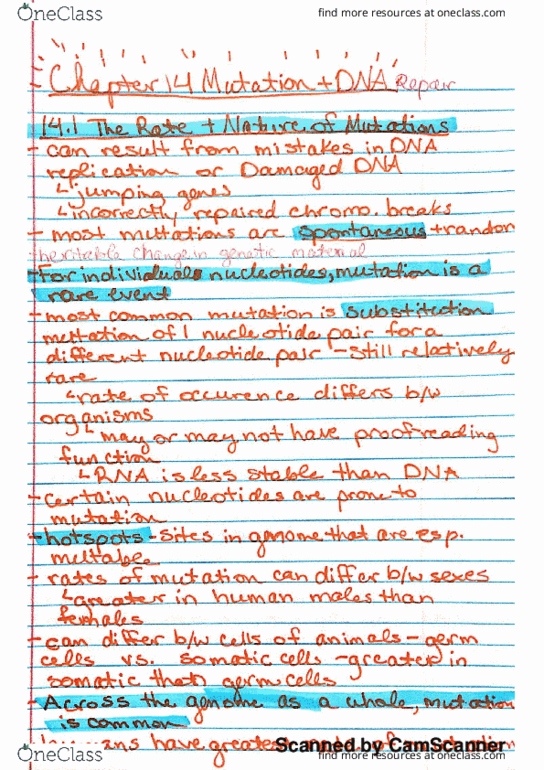 OneClass
find more resources at oneclass.com
Chapter 14 Mutation + DNA Repair
14.1 The Rate + Nature of Mutations
- can result from mistakes in DNA
replication or Damaged DNA
↳ jumping genes
↳ incorrectly repaired chromo. breaks
- most mutations are spontaneous + random
heritable change in genetic material
- For individual nucleotides, mutation is a
rare event
- most common mutation is substitution
mutation of 1 nucleotide pair for a
different nucleotide pair - still relatively
rare
↳ rate of occurence differs b/w
organisms
↳ may or may not have proofreading
function
↳ RNA is less stable than DNA
- certain nucleotides are prone to
mutation
- hotspots - sites in genome that are esp.
mutable
- rates of mutation can differ b/w sexes
↳ greater in human males than
females
- can differ b/w cells of animals - germ
cells vs. somatic cells - greater in
somatic than germ cells
- Across the genome as a whole, mutation
is common
have greater
Scanned by CamScanner
OneClass
find more resources at oneclass.com